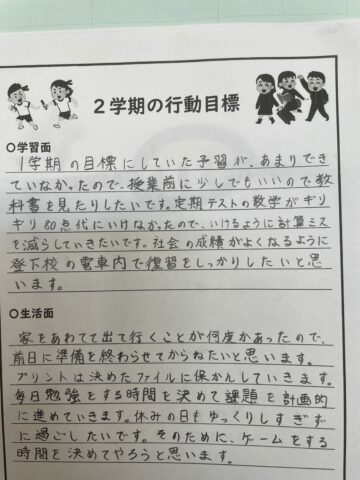 2学期の行動目標
○学習面
1学期の目標にしていた予習が、あまりでき
ていなかったので、授業前に少しでもいいので教
科書を見たりしたいです。定期テストの数学がギリ
ギリ80点代にいけなかったので、いけるように計算ミス
を減らしていきたいです。社会の成績がよくなるように
登下校の電車内で復習をしっかりしたいと思
います。
○生活面
家をあわてて出て行くことが何度かあったので、
前日に準備を終わらせてからねたいと思います。
プリントは決めたファイルに保かんしていきます。
毎日勉強をする時間を決めて課題を計画的
に進めていきます。休みの日もゆっくりしすぎず
に過ごしたいです。そのために、ゲームをする
時間を決めてやろうと思います。